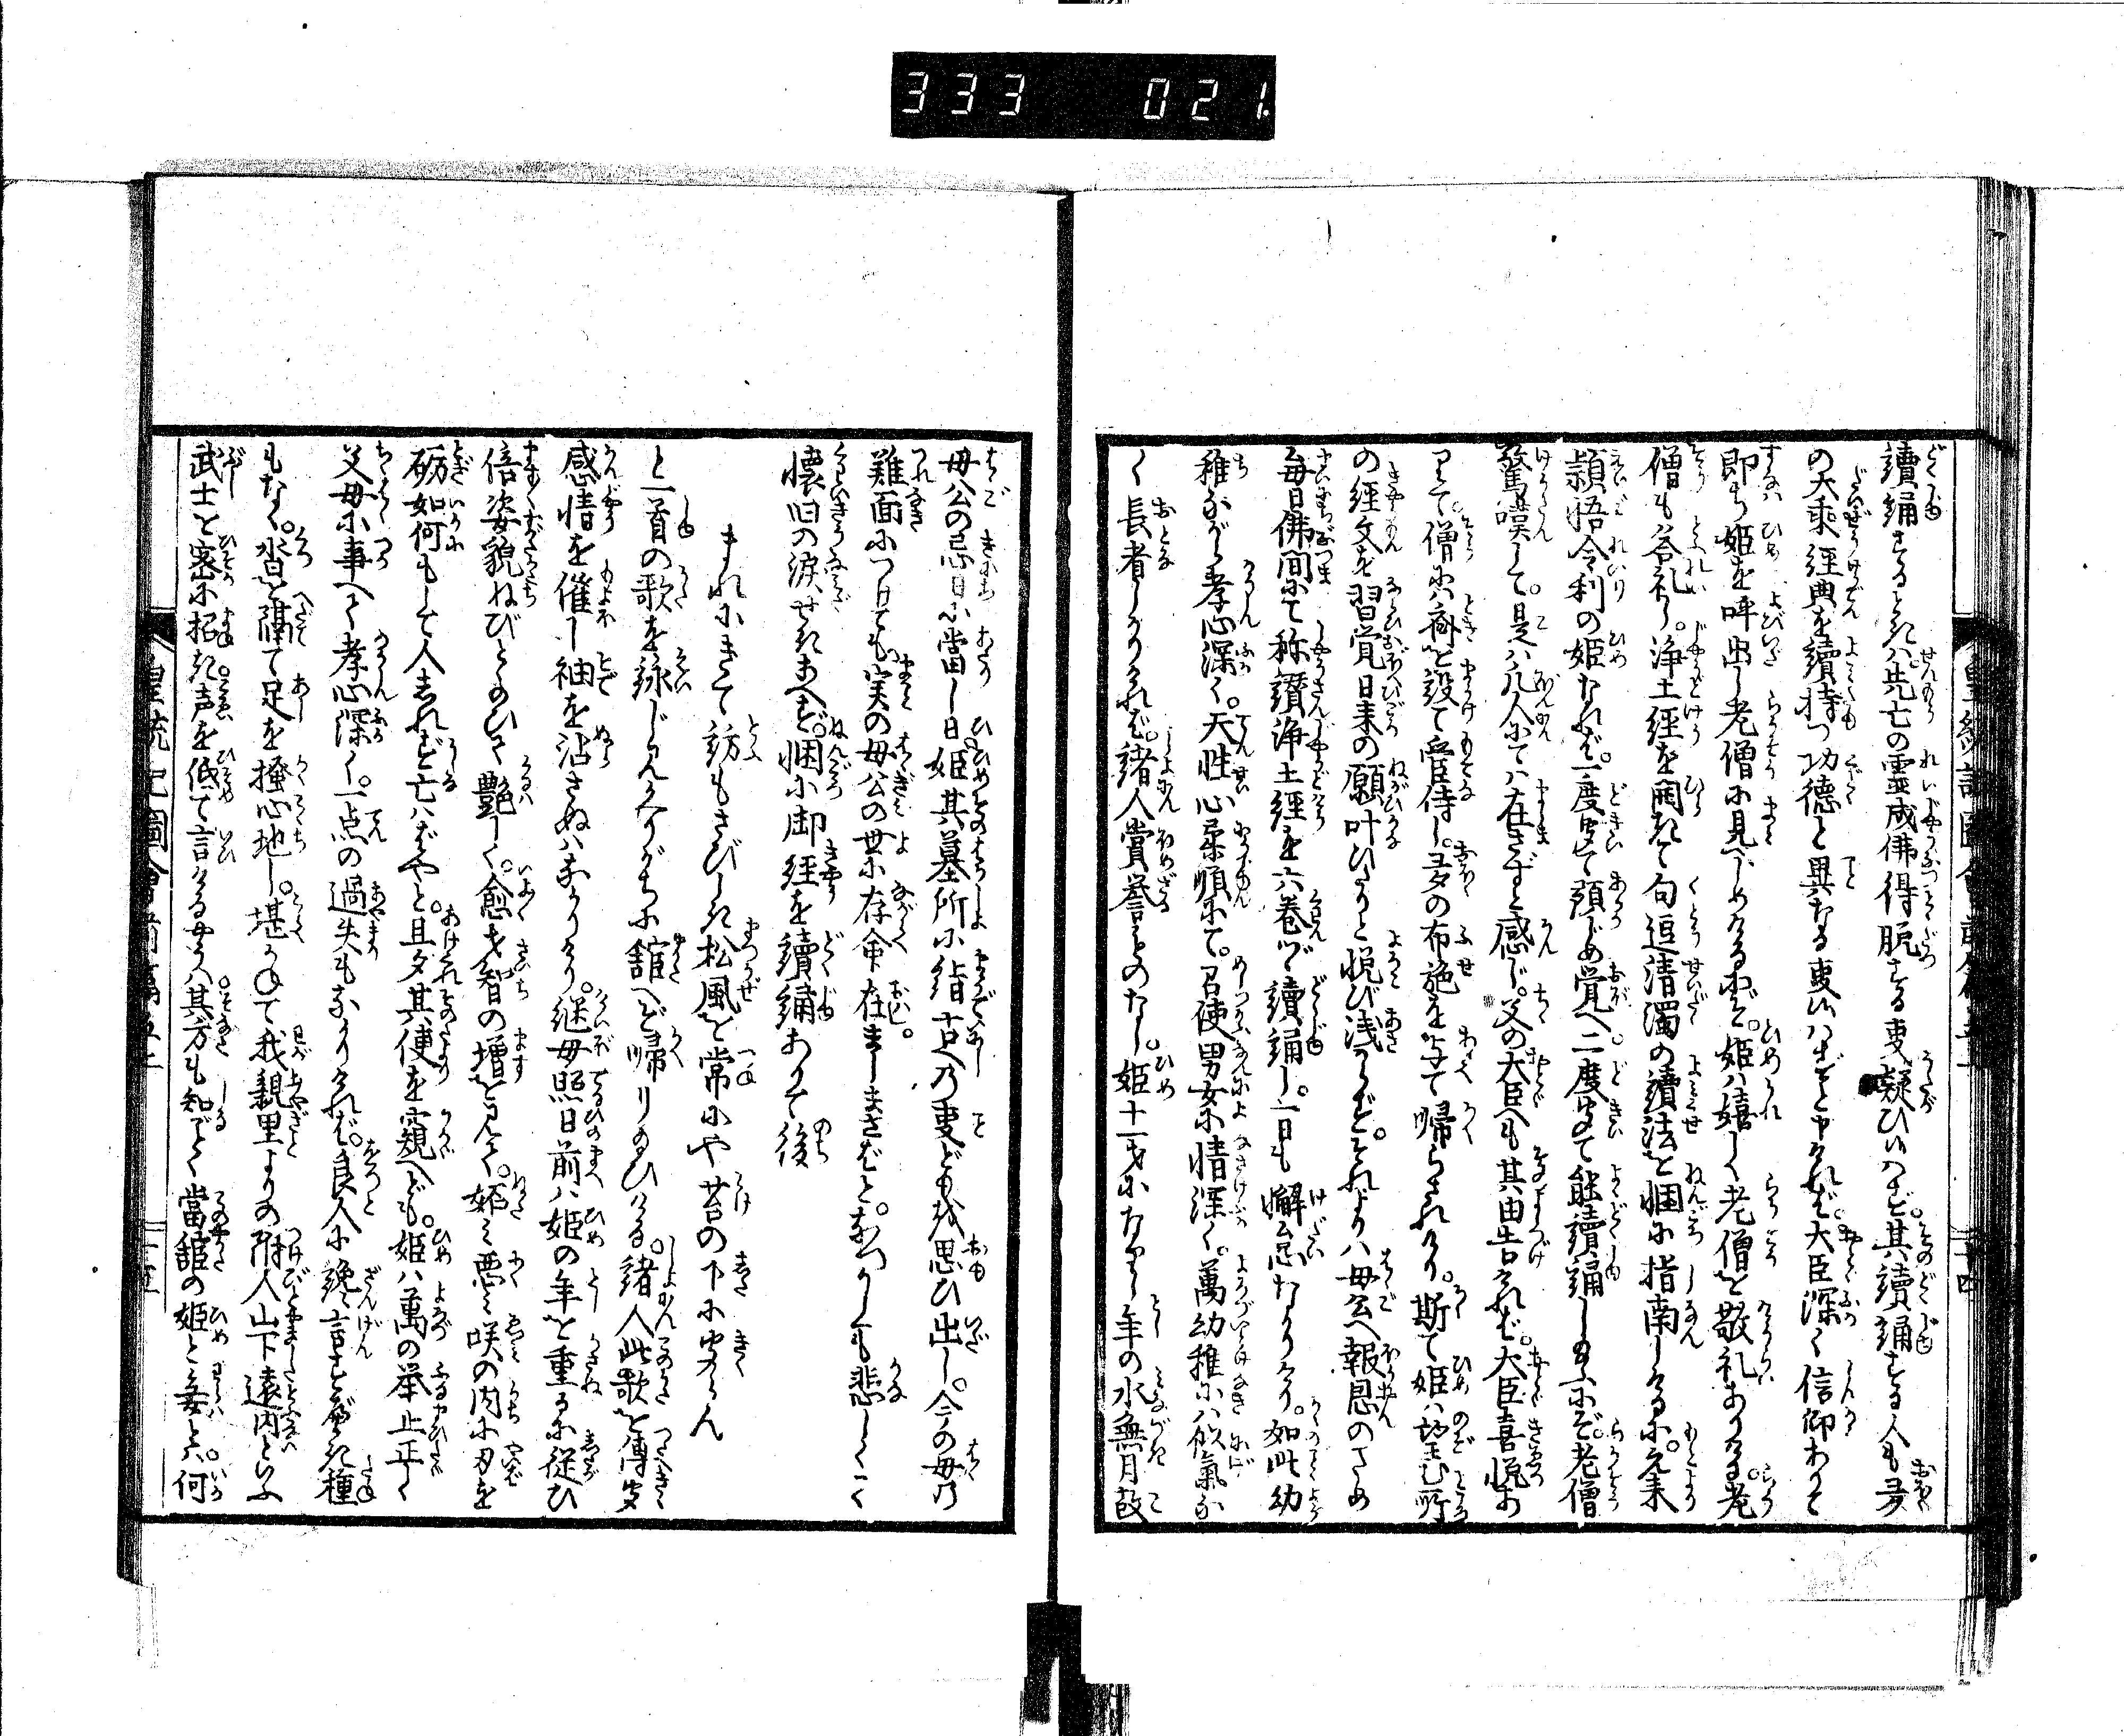 333 021.
讀誦するときは先亡の霊成佛得脱する叓疑ひ候はず。其讀誦する人も多
の大乗経典を讀持つ功徳と異なる叓候はずと申ければ。大臣深く信仰ありて
即ち姫を呼出し老僧に見へしめ給るにぞ。姫は嬉しく老僧を敬礼ありける。老
僧も答礼し。浄土経を開きて句逗清濁の讀法を悃に指南しけるに。元来
頴悟令利の姫なれば。一度聞て頚じめ覚へ二度聞て能讀誦し給ふにぞ。老僧
驚嘆して。是は凡人にては在さずと感じ。父の大臣へも其由告ければ。大臣喜悦あ
りて。僧には斎を設て管侍し。多の布施を与て帰らされけり。斯て姫は望む所
の経文を習覚日来の願叶ひたりと悦び浅からず。それよりは母公へ報恩のため
毎日佛間にて称讃浄土経を六巻づゝ讀誦し。一日も懈怠なかりけり。如此幼
稚ながら孝心深く。天性心柔順にて。召使男女に情深く。萬幼稚には似氣な
く長者しかりければ。諸人賞誉ざるものなし。姫十一才になり給ふ年の水無月故
母公の忌日に當し日。姫其墓所に詣古乃叓ども我思ひ出し。今の母乃
難面につけても。実の母公の世に存命在ましまさばと。なつかしくも悲しくて
懐旧の涙せきあへず。悃に御経を讀誦ありて後
まれにきて訪もさびしき松風を常にや苔の下に聞らん
と一首の歌を詠じ見かへりがちに舘へぞ帰り給ひける。諸人此歌を傳聞
感情を催し袖を沾さぬはなかりけり。継母照日前は姫の年を重るに従ひ
倍姿貌ねびとゝのひて艶しく。愈才智の増を見て。姤ミ悪ミ咲の内に刃を
砺如何もして人しれず亡はばやと。旦夕其便を窺へども。姫は萬の挙止正しく
父母に事へて孝心深く。一点の過失もなかりければ。良人に讒言すべき種
もなく。沓を隔て足を掻心地し。堪かねて我親里よりの附人山下遠内といふ
武士を密に招き。声を低て言けるやうは其方も知ごとく當舘の姫と妾とは。何